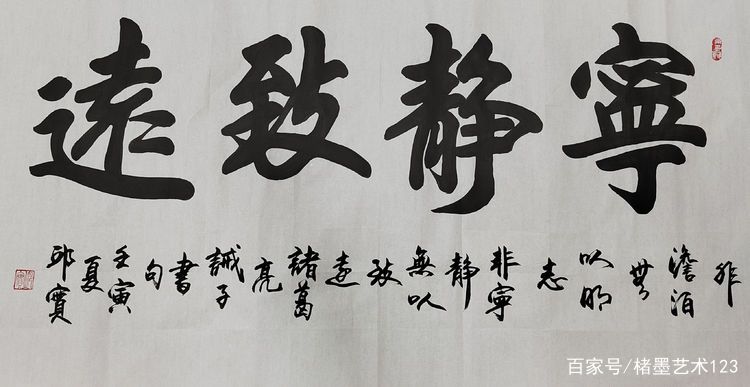 寧靜致遠
非
澹泊
無
以明
志
非寧
靜
無以
致
遠
諸葛
亮
誡子
書
句
壬寅
夏
邱寶
百家号/楮墨艺术123